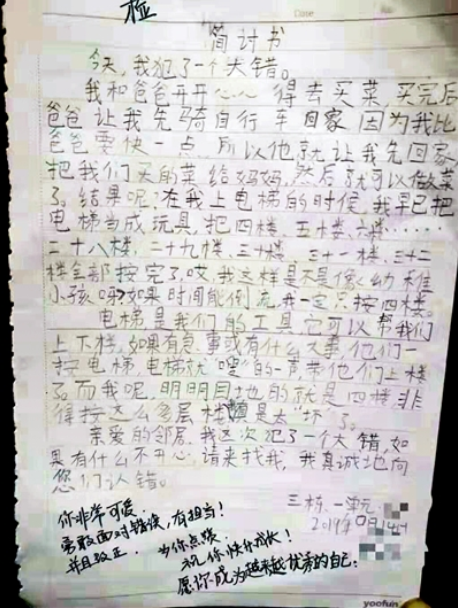 检
Date
简讨书
今天,我犯了一个大错。
我和爸爸开开～～得去买菜,买完后
爸爸让我先骑自行车回家因为我比
爸爸要快一点.所以他就让我先回家
把我们买的菜给妈妈,然后就可以做菜
了。结果呢?在我上电梯的时候,我早已把
电梯当成玩具,把四楼、五楼、六楼……
二十八楼、二十九楼、三十楼、三十一楼、三十二
楼全部按完了哎,我这样是不是像幼稚
小孩呀?如果时间能倒流,我一定只按四楼。
电梯是我们的工具,它可以帮我们
上下楼,如果有急事或有什么大事,他们一
按电梯,电梯就“嗖”的一声,带他们上楼
了。而我呢,明明目地的就是四楼,非
得按这么多层楼真是太“坏”了。
亲爱的邻居,我这次犯了一个大错,如
果有什么不开心,请来找我,我真诚地向
您们认错。
三栋、一单元
2019年
你非常可爱.
勇敢面对错误,有担当!
并且改正. 为你点赞.
祝你快乐成长!
愿你成为越来越优秀的自己.
yoofun